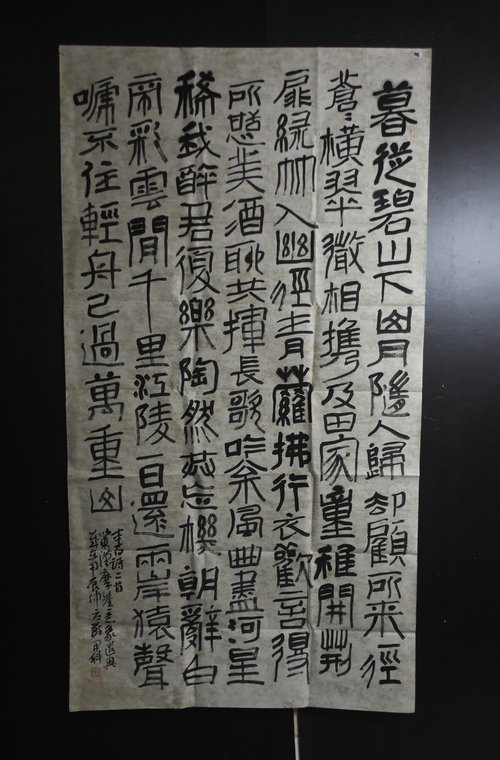 暮從碧山下山月隨人歸却顧所來徑
蒼〻橫翠微相攜及田家童稚開荊
扉緑竹入幽徑青蘿拂行衣歡言得
所憩美酒聊共揮長歌吟松風曲盡河星
稀我醉君復樂陶然共忘機朝辭白
帝彩雲間千里江陵一日還兩岸猿聲
啼不住輕舟已過萬重山
李白詩二首
漢摩崖